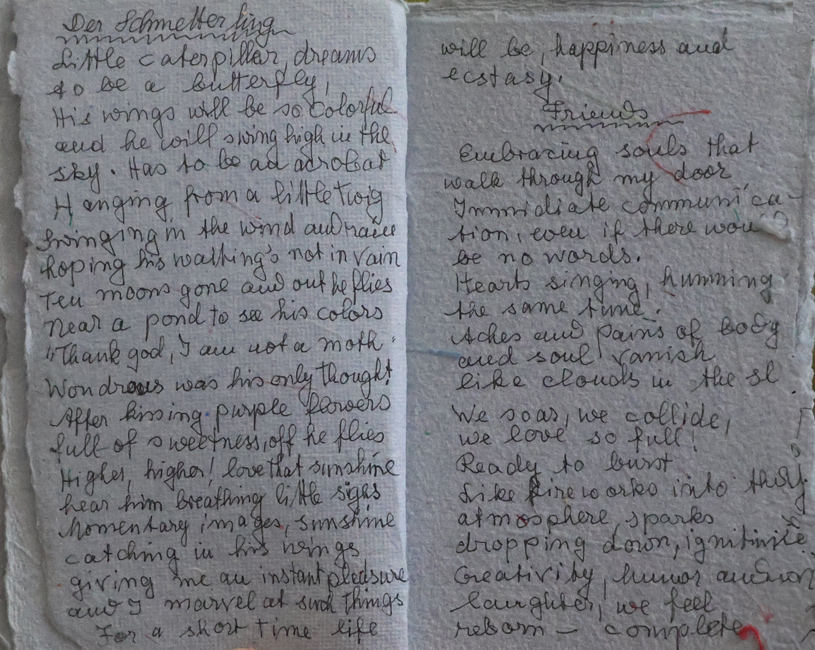 Der Schmetterling
Little caterpillar, dreams
to be a butterfly,
His wings will be so colorful
and he will swing high in the
sky. Has to be an acrobat
Hanging from a little twig
Swinging in the wind and rain
hoping his waiting's not in vain
Ten moons gone and out he flies
near a pond to see his colors
"Thank god, I am not a moth"
Wondrous was his only thought
After kissing purple flowers
full of sweetness, off he flies
Higher, higher! love that sunshine
hear him breathing little sighs
Momentary images, sunshine
catching in his wings
giving me an instant pleasure
and I marvel at such things
For a short time life
will be, happiness and
ecstasy.
Friends
Embracing souls that
walk through my door
Immidiate communica-
tion, even if there would
be no words.
Hearts singing, humming
the same tune.
Aches and pains of body
and soul vanish
like clouds in the
We soar, we collide,
we love so full!
Ready to burst
Like fireworks into the
atmosphere, sparks
dropping down,
Creativity, humor and
laughter, we feel
reborn – complete